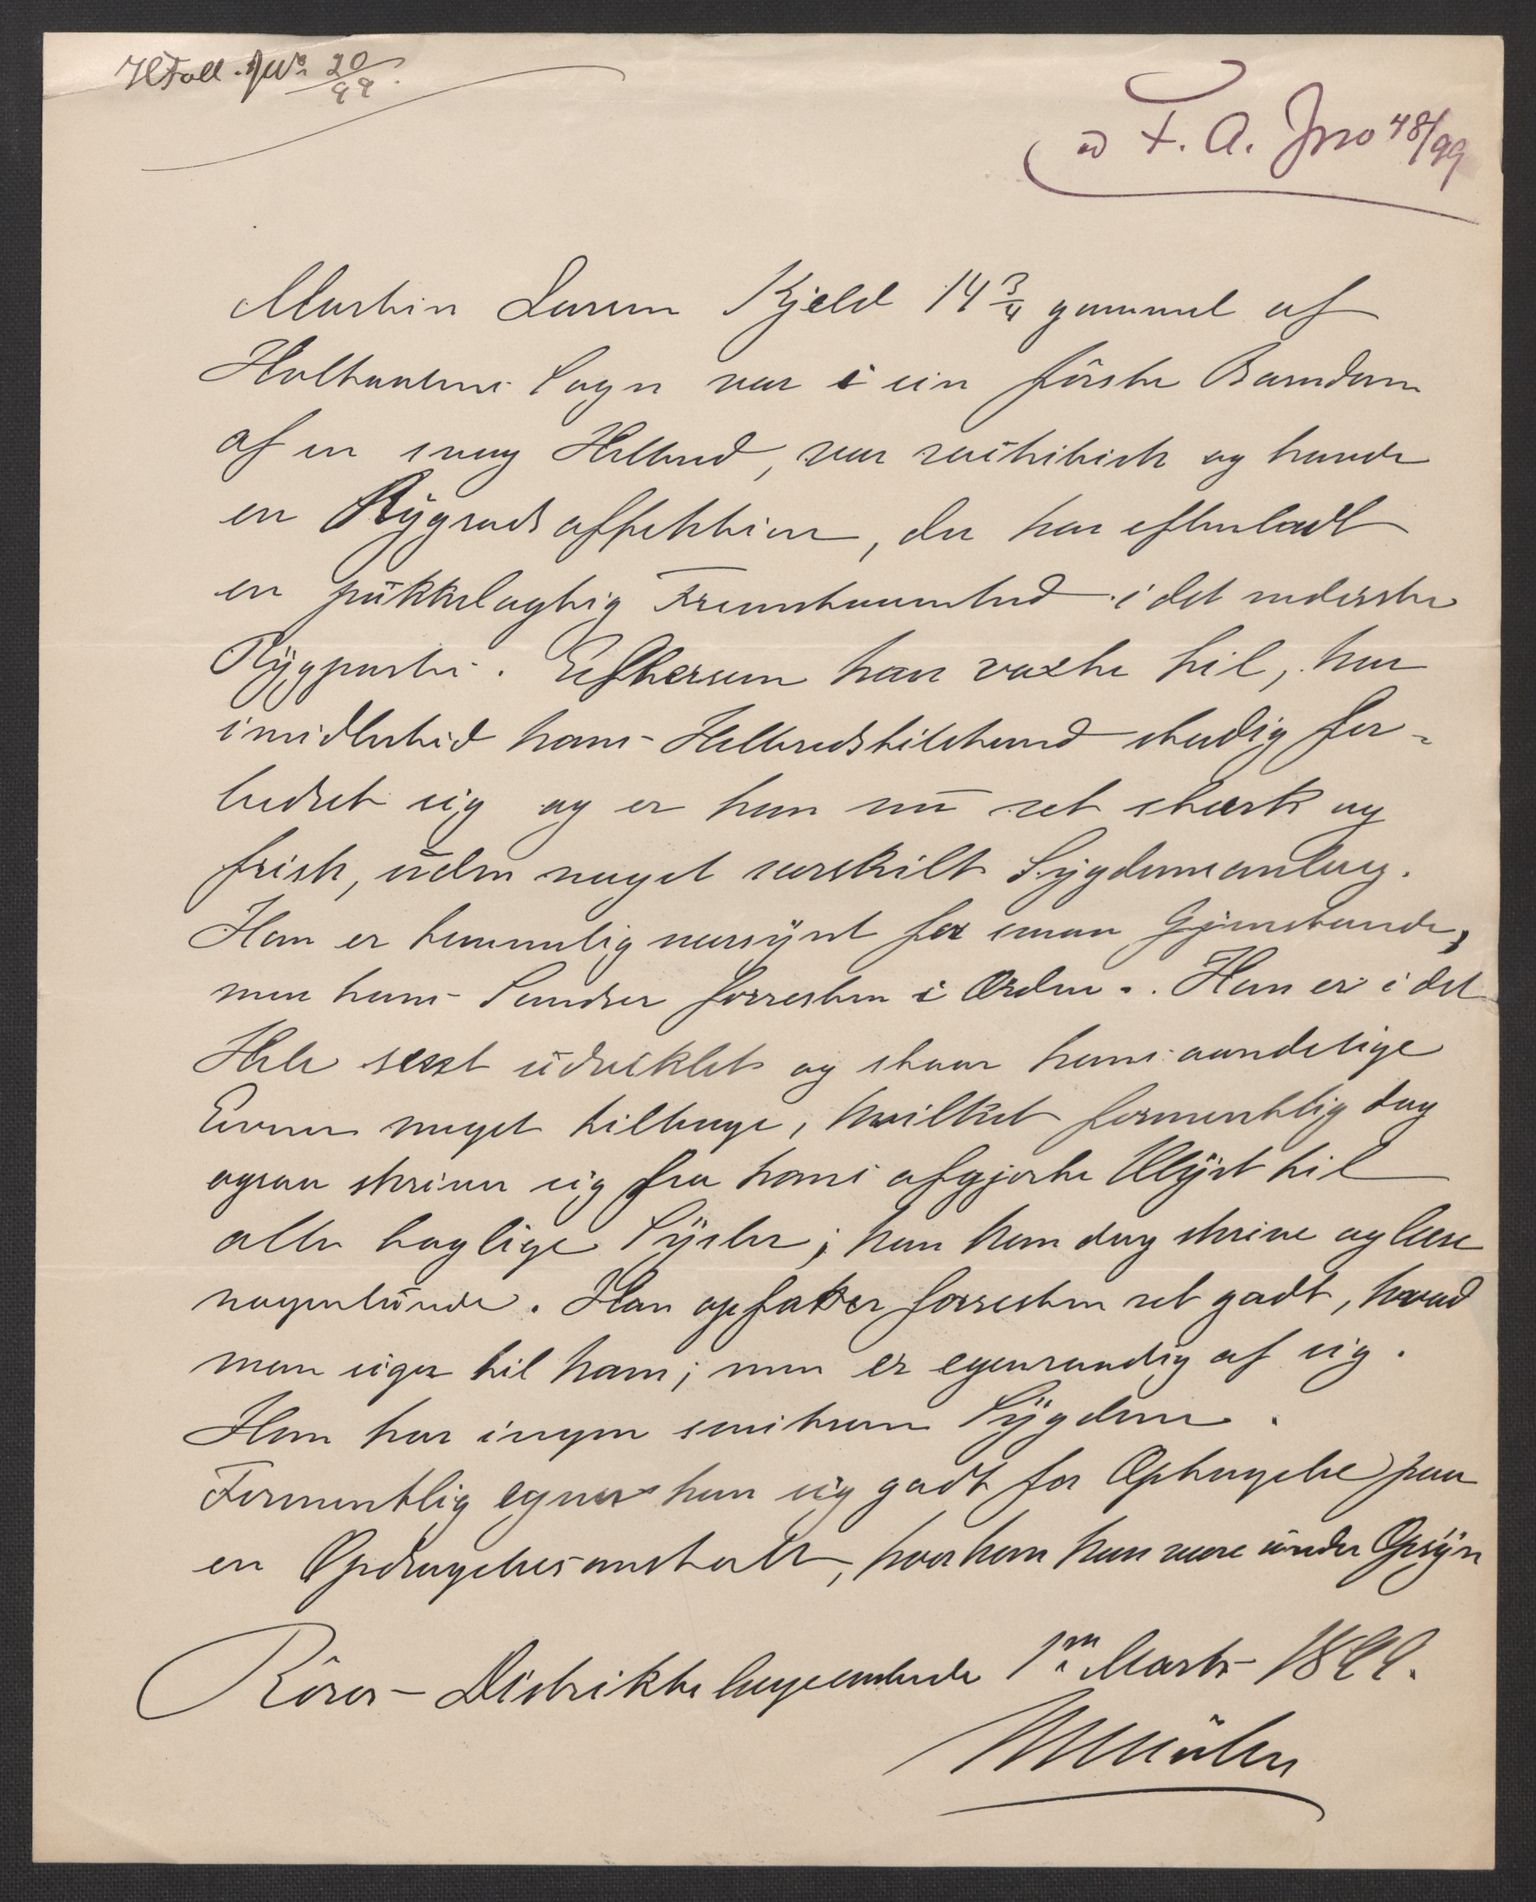 HFall. JNo 20/99.
ad F. A. Jno 48/99
Martin Larsen Kjeld 14 3/4 gammel af
Holtaalens Sogn var i sin förste Barndom
af en svag Helbred, var rachitisk og havde
en Rygradsaffektion, der har efterladt
en pukkelagtig Fremstaaenhed i det nederste
Rygparti. Eftersom han voxte til, har
imidlertid hans Helbredstilstand stadig for-
bedret sig og er han nu ret stærk og
frisk, uden noget særskilt Sygdomsanlæg.
Han er temmelig nærsynt for smaa Gjenstande,
men hans Sandser forresten i Orden. Han er i det
Hele sent udviklet og staar hans aandelige
Evner meget tilbage, hvilket formentlig dog
ogsaa skriver sig fra hans afgjorte Ulyst til
alle boglige Sysler; han kan dog skrive og læse
nogenlunde. Han opfatter forresten ret godt, hvad
man siger til ham; men er egenraadig af sig.
Han har ingen smitsom Sygdom.
Formentlig egner han sig godt for Optagelse paa
en Opdragelsesanstalt, hvor han kan være under Opsyn
Röros Distriktslægeembede 1ste Marts 1899.